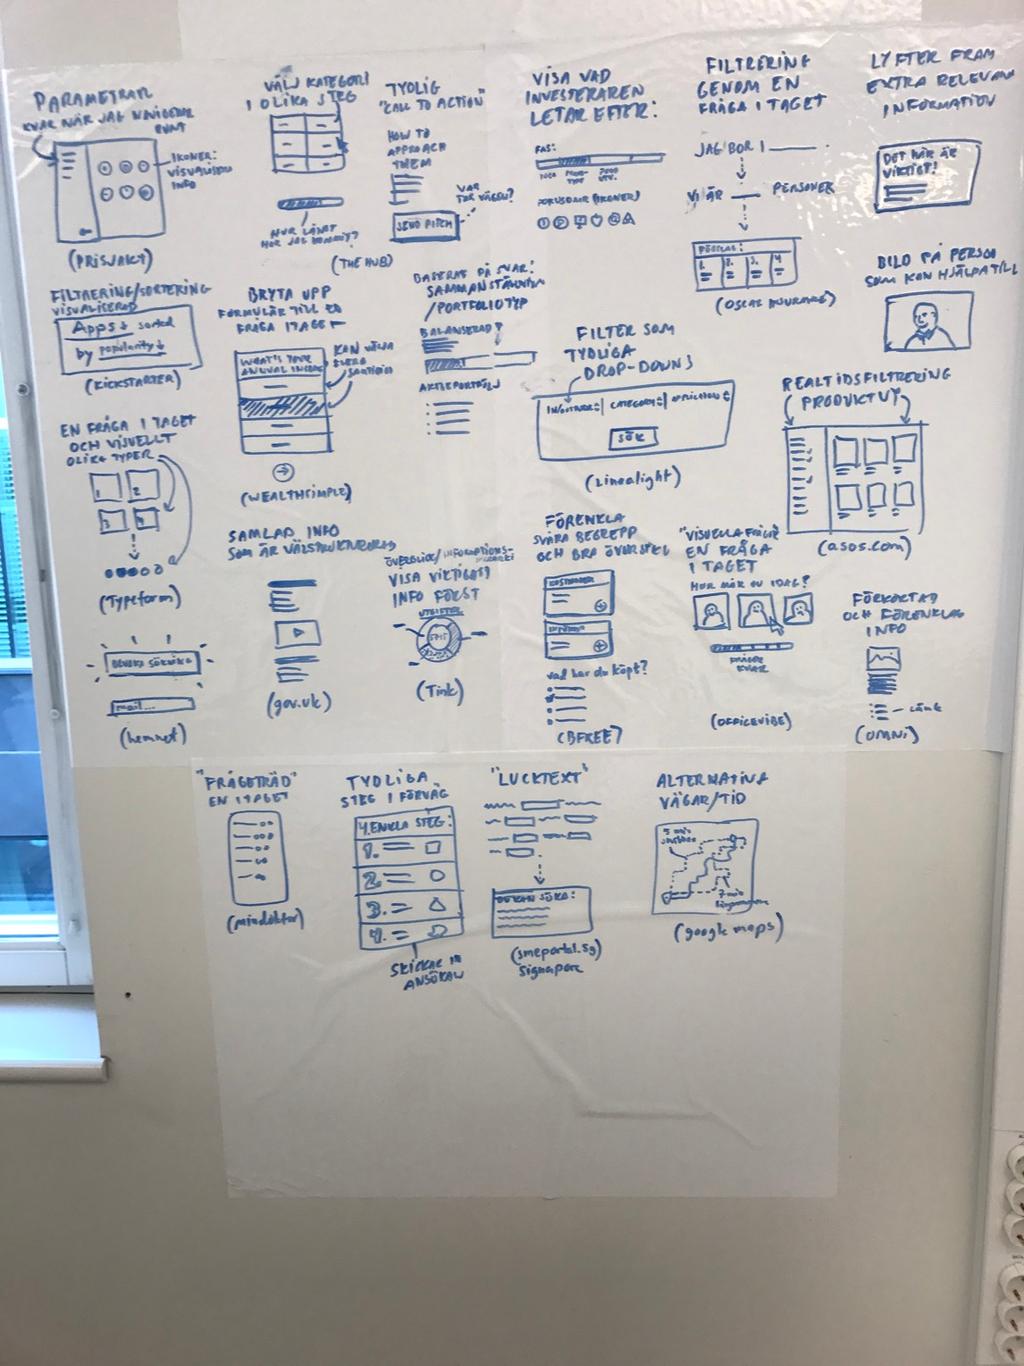 PARAMETRAR
KVAR NÄR JAG NAVIGERAR
RUNT
IKONER:
VISUALISERA
INFO
(PRISJAKT)
VÄLJ KATEGORI
I OLIKA STEG
HUR LÅNGT
HAR JAG KOMMIT?
(THE HUB)
TYDLIG
"CALL TO ACTION"
HOW TO
APPROACH
THEM
SEND PITCH
VAR
TAR VÄGEN?
VISA VAD
INVESTERAREN
LETAR EFTER:
FAS:
(IKONER)
FILTRERING
GENOM EN
FRÅGA I TAGET
JAG BOR I
VI ÄR
PERSONER
FÖRSLAG:
1. 2. 3. 4
LYFTER FRAM
EXTRA RELEVANT
INFORMATION
DET HÄR ÄR
VIKTIGT!
BILD PÅ PERSON
SOM KAN HJÄLPA TILL
FILTRERING/SORTERING
VISUALISERAD
Apps sorted
by popularity
(KICKSTARTER)
BRYTA UPP
FORMULÄR TILL EN
FRÅGA I TAGET
WHAT'S YOUR
ANNUAL INCOME
KAN VÄLJA
FLERA
SAMTIDIGT
(WEALTHSIMPLE)
BASERAT PÅ SVAR:
SAMMANSTÄLLNING
/PORTFOLIOTYP
BALANSERAD?
AKTIEPORTFÖLJ
FILTER SOM
TYDLIGA
DROP-DOWNS
CATEGORY
SÖK
REALTIDSFILTRERING
PRODUKTVY
(asos.com)
EN FRÅGA I TAGET
OCH VISUELLT
OLIKA TYPER
1 2
3
(Typeform)
SAMLAD INFO
SOM ÄR VÄLSTRUKTURERAD
(gov.uk)
ÖVERBLICK/INFORMATIONS-
VISA VIKTIGAST
INFO FÖRST
UTGIFTER
(Tink)
FÖRENKLA
SVÅRA BEGREPP
OCH BRA ÖVERSIKT
KOSTNADER
vad har du köpt?
(BFREE)
"VISUELLA FRÅGOR"
EN FRÅGA
I TAGET
HUR MÅR DU IDAG?
FRÅGOR
KVAR
(OFFICEVIBE)
FÖRKORTAD
OCH FÖRENKLAD
INFO
LÄNK
(OMNI)
BEVAKA SÖKNING
mail...
(hemnet)
"FRÅGETRÄD"
EN I TAGET
(mindoktor)
TYDLIGA
STEG I FÖRVÄG
4 ENKLA STEG:
1.
2.
3.
4.
SKICKAR IN
ANSÖKAN
"LUCKTEXT"
DU KAN SÖKA:
(smeportal.sg)
Signapore
ALTERNATIVA
VÄGAR/TID
5 min
7 min
(google maps)